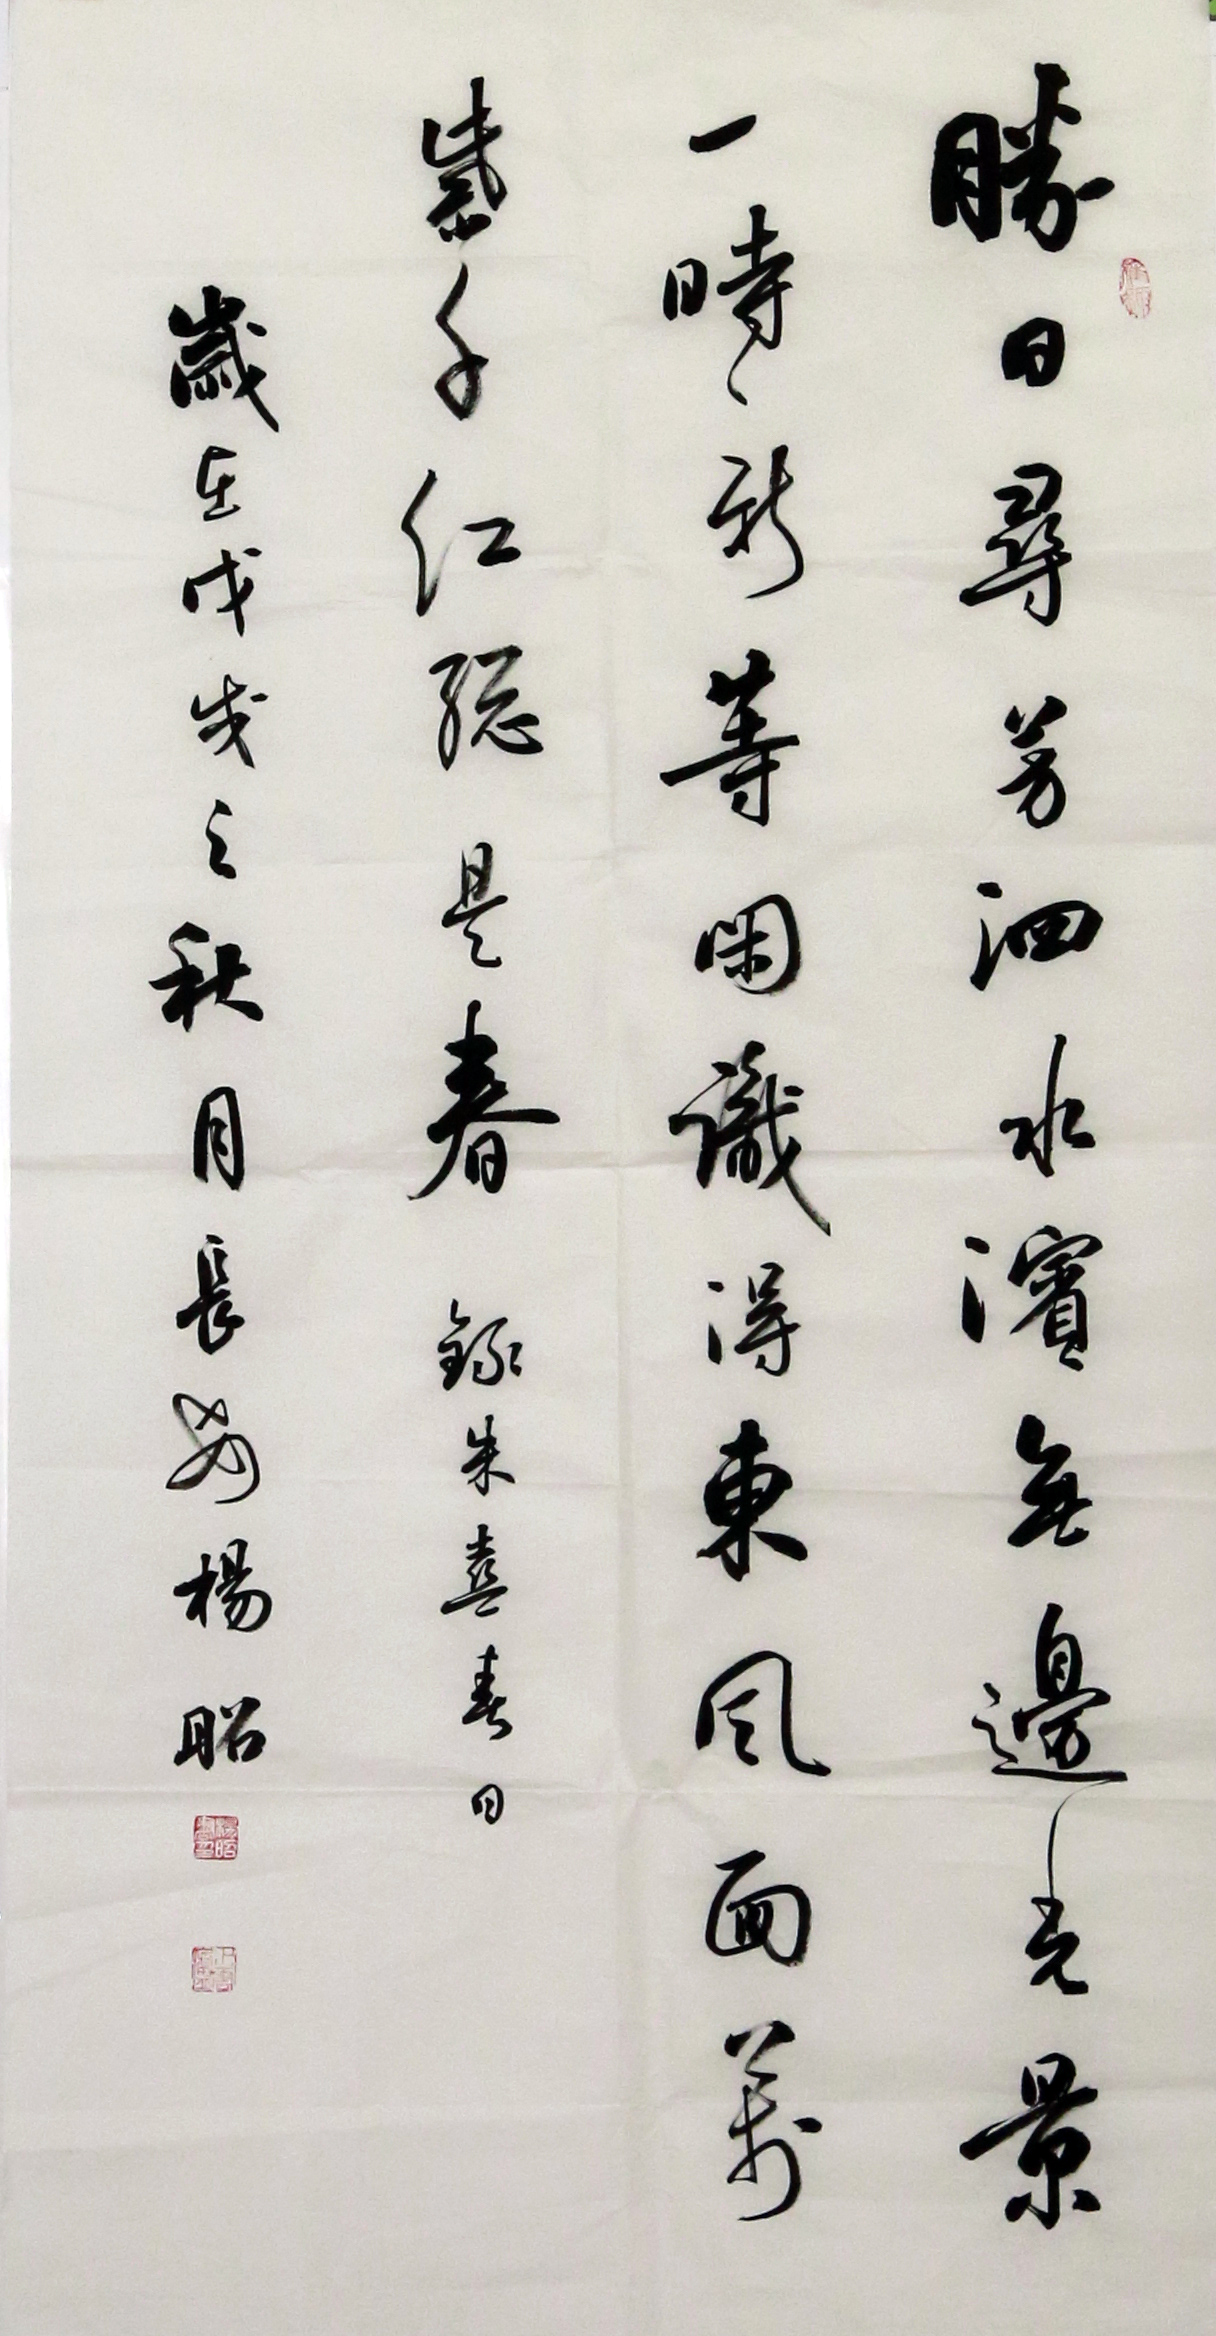 勝日尋芳泗水濱無邊光景
一時新等閑識得東風面萬
紫千紅總是春 錄朱熹春日
歲在戊戌之秋月長安楊昭